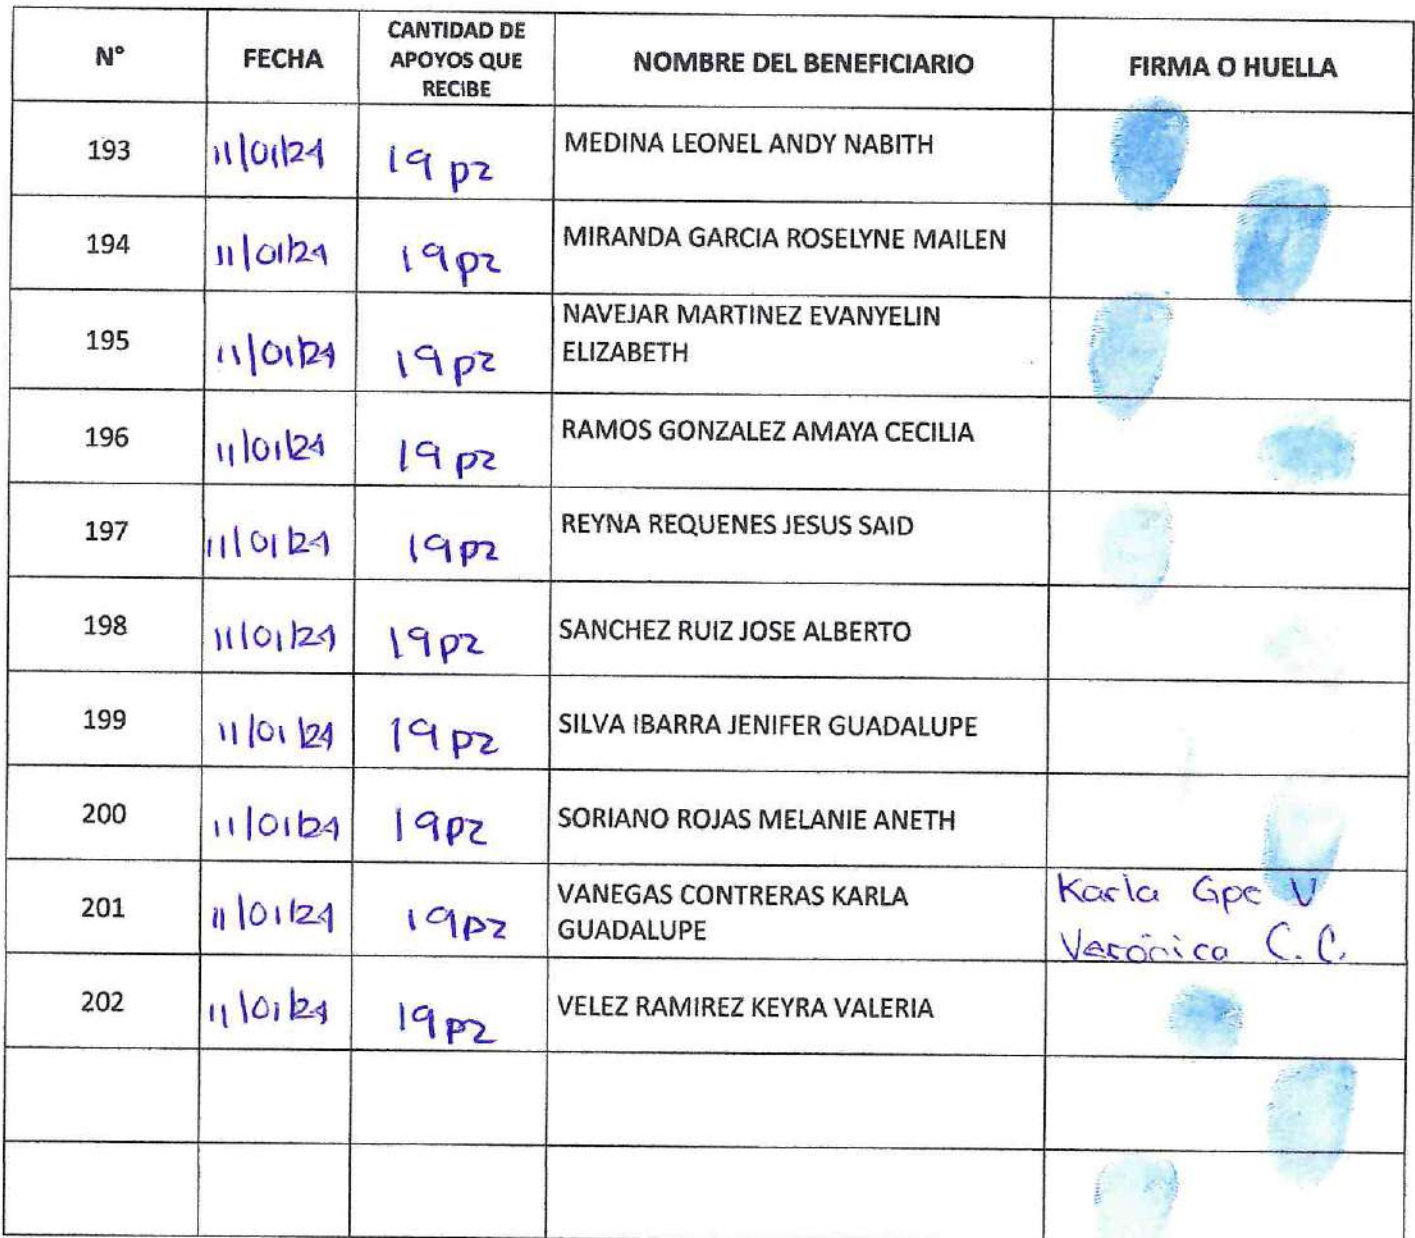 N° FECHA CANTIDAD DE APOYOS QUE RECIBE NOMBRE DEL BENEFICIARIO FIRMA O HUELLA
193 11/01/24 19 pz MEDINA LEONEL ANDY NABITH
194 11/01/24 19 pz MIRANDA GARCIA ROSELYNE MAILEN
195 11/01/24 19 pz NAVEJAR MARTINEZ EVANYELIN
ELIZABETH
196 11/01/24 19 pz RAMOS GONZALEZ AMAYA CECILIA
197 11/01/24 19 pz REYNA REQUENES JESUS SAID
198 11/01/24 19 pz SANCHEZ RUIZ JOSE ALBERTO
199 11/01/24 19 pz SILVA IBARRA JENIFER GUADALUPE
200 11/01/24 19 pz SORIANO ROJAS MELANIE ANETH
201 11/01/24 19 pz VANEGAS CONTRERAS KARLA Karla Gpe V
GUADALUPE Verónica C.C.
202 11/01/24 19 pz VELEZ RAMIREZ KEYRA VALERIA